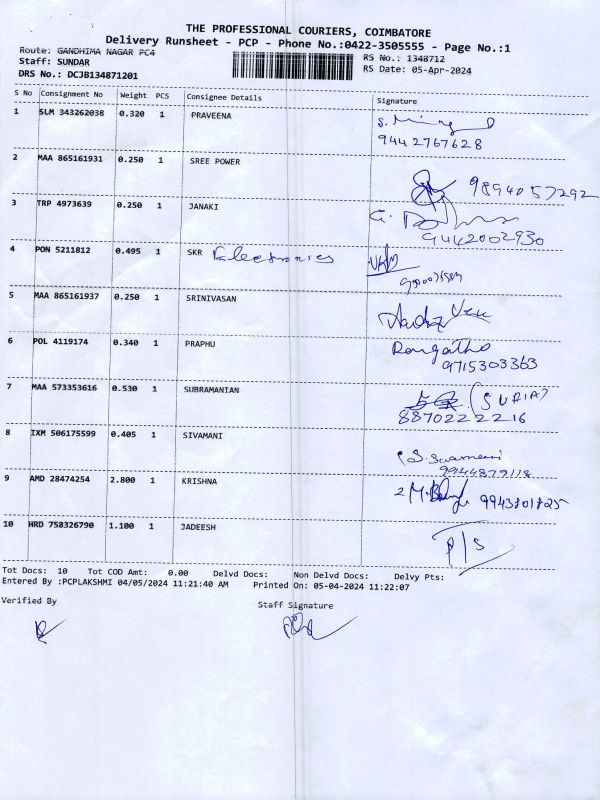 THE PROFESSIONAL COURIERS, COIMBATORE
Delivery Runsheet - PCP - Phone No.:0422-3505555 - Page No.:1
Route: GANDHIMA NAGAR PC4
RS No.: 1348712
Staff: SUNDAR
RS Date: 05-Apr-2024
DRS No.: DCJB134871201
S No Consignment No Weight PCS Consignee Details Signature
1 SLM 343262038 0.320 1 PRAVEENA
9442767628
2 MAA 865161931 0.250 1 SREE POWER
9894057292
3 TRP 4973639 0.250 1 JANAKI
9442002930
4 PON 5211812 0.495 1 SKR Electronics
5 MAA 865161937 0.250 1 SRINIVASAN
6 POL 4119174 0.340 1 PRAPHU
9715303363
7 MAA 573353616 0.530 1 SUBRAMANIAN (SURIA)
8870222216
8 IXM 506175599 0.405 1 SIVAMANI
9944879118
9 AMD 28474254 2.800 1 KRISHNA
9943801825
10 HRD 758326790 1.100 1 JADEESH
Tot Docs: 10 Tot COD Amt: 0.00 Delvd Docs: Non Delvd Docs: Delvy Pts:
Entered By :PCPLAKSHMI 04/05/2024 11:21:40 AM Printed On: 05-04-2024 11:22:07
Verified By Staff Signature